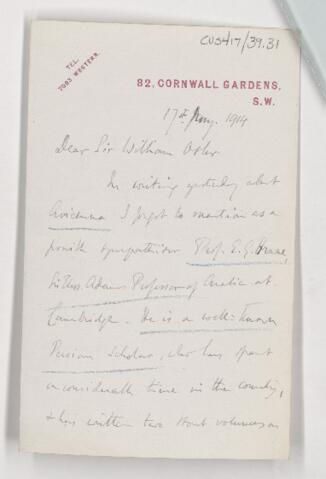 CUS417/39.31
TEL.
7093 WESTERN.
82, CORNWALL GARDENS,
S.W.
1914
Dear Sir William Osler
In writing yesterday about
Avicenna I forgot to mention as a
possible sympathiser Prof. E. G. Browne,
Sir Thos. Adams Professor of Arabic at
Cambridge. He is a well-known
Persian Scholar, who has spent
considerable time in the country,
& has written two stout volumes on